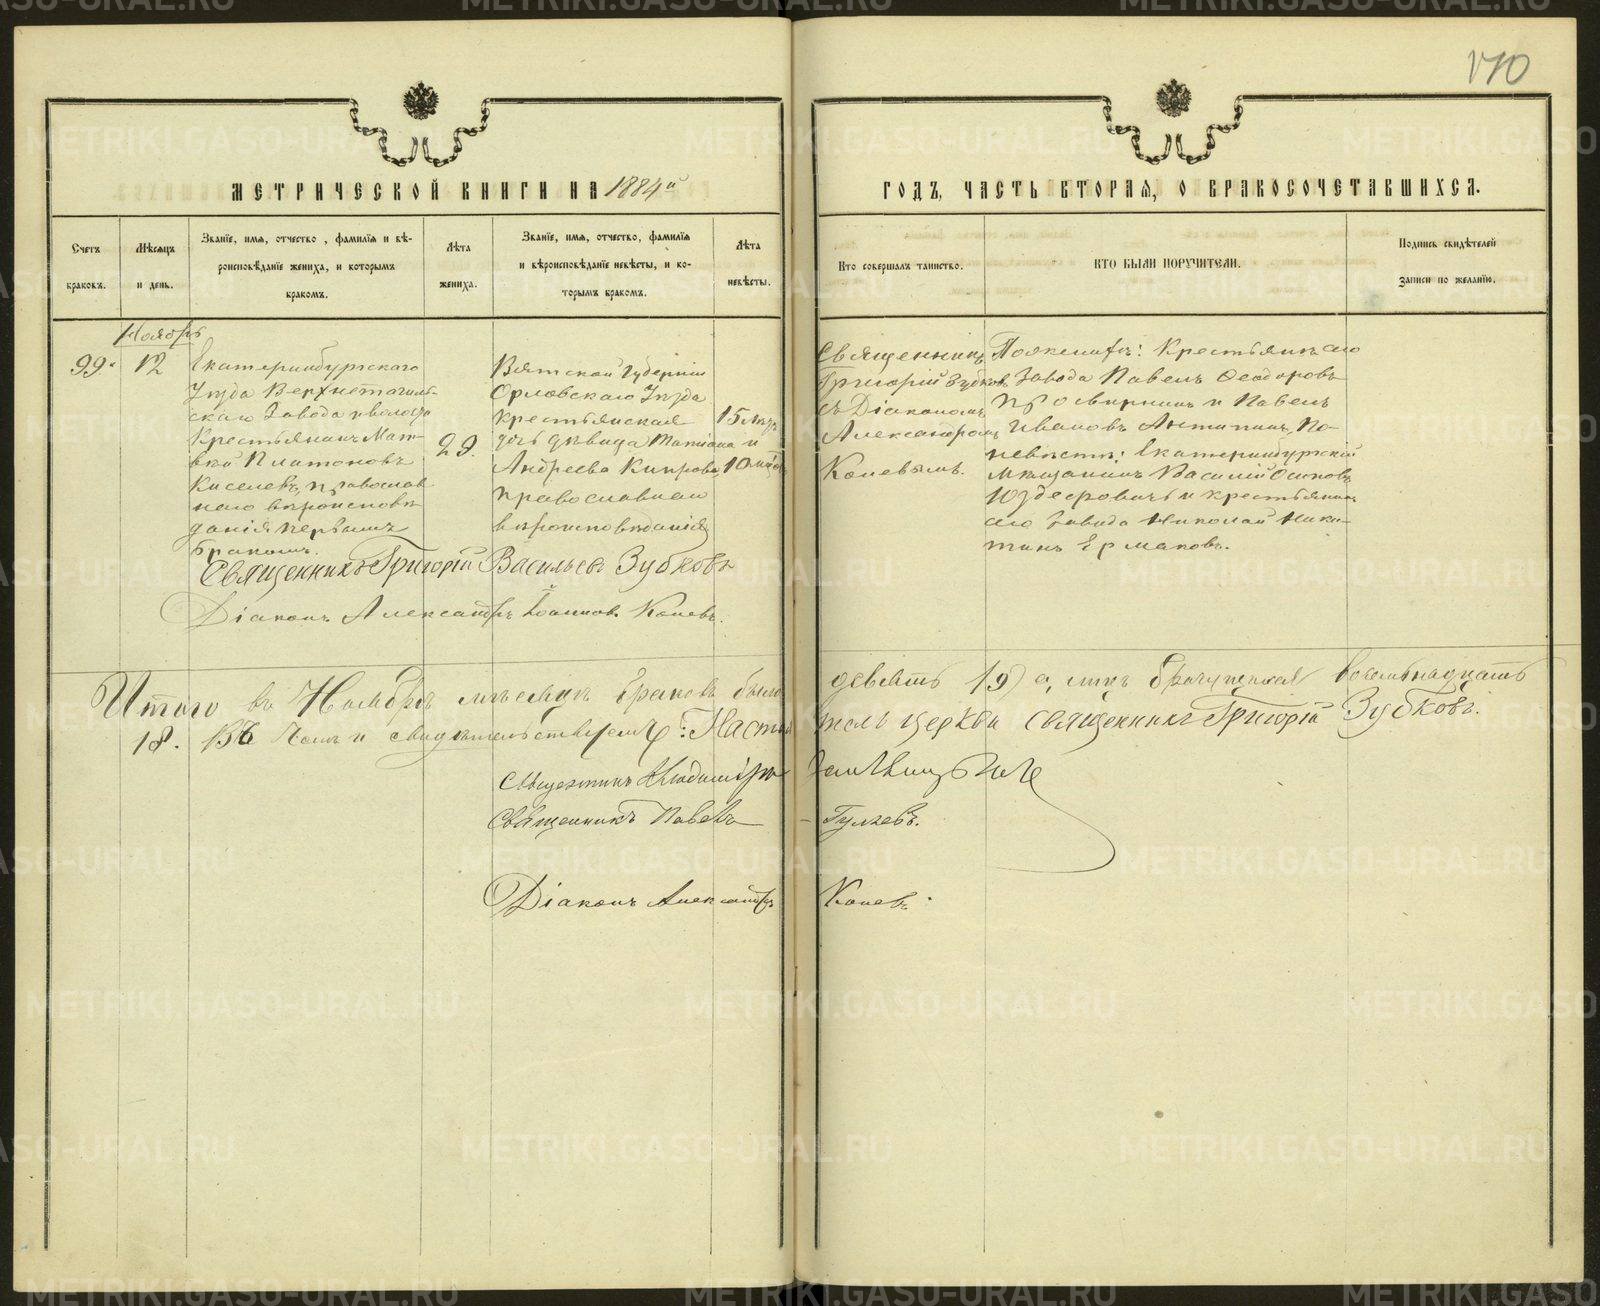 170
МЕТРИЧЕСКОЙ КНИГИ НА 1884й
ГОДЪ, ЧАСТЬ ВТОРАЯ, О БРАКОСОЧЕТАВШИХСЯ.
Счетъ браковъ.
Мѣсяцъ и день.
Званіе, имя, отчество, фамилія и вѣ-
роисповѣданіе жениха, и которымъ
бракомъ.
Лѣта жениха.
Званіе, имя, отчество, фамилія
и вѣроисповѣданіе невѣсты, и ко-
торымъ бракомъ.
Лѣта невѣсты.
Кто совершалъ таинство.
КТО БЫЛИ ПОРУЧИТЕЛИ.
Подпись свидѣтелей
записи по желанію.
Ноябрь
99.
12
Екатеринбургскаго
Уѣзда Верхнетагиль-
скаго Завода и волости
Крестьянинъ Мат-
вѣй Платоновъ
Киселевъ, православ
наго вѣроисповѣ
данія первымъ
бракомъ.
29.
Вятской Губерніи
Орловскаго Уѣзда
крестьянская
дочь дѣвица Татіана
Андреева Кипрова,
православнаго
вѣроисповѣданія
15 лѣтъ
и
10 мѣс.
Священникъ
Григорій Зубковъ
съ Діакономъ
Александромъ
Коневымъ.
По женихѣ: Крестьяне сего
завода Павелъ Ѳеодоровъ
Просвирнинъ и Павелъ
Ивановъ Антипинъ, По
невѣстѣ: Екатеринбургскій
мѣщанинъ Василій Осиповъ
и крестьянинъ
сего Завода Николай Ники-
тинъ Ермаковъ.
Священникъ Григорій Васильевъ Зубковъ
Діаконъ Александръ Іоанновъ Коневъ.
Итого въ Ноябрѣ мѣсяцѣ браковъ было девять 19) а, лицъ восемьнадцать
18. Въ чемъ и свидѣтельствуемъ: Настоятель церкви священникъ Григорій Зубковъ.
Священникъ Владиміръ
Священникъ Павелъ Гуляевъ.
Діаконъ Александръ Коневъ.
METRIKI.GASO-URAL.RU